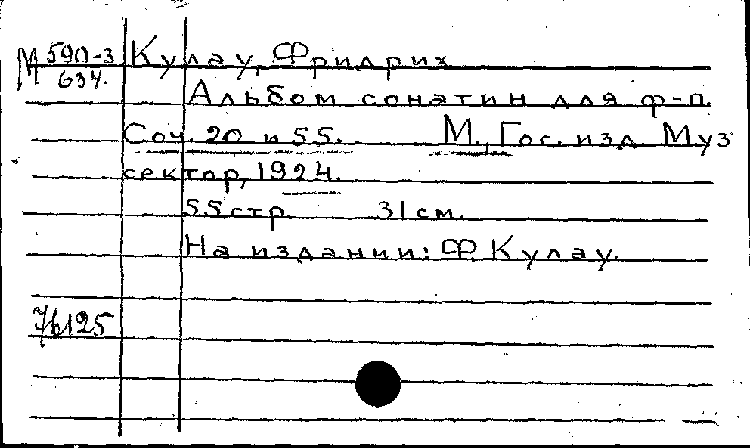 М 590-3 Кулау, Фридрих
634. Альбом сонатин для ф-п.
Соч. 20 и 55. М., Гос. изд. Муз
сектор, 1924.
55 стр. 31 см.
На издании: Ф Кулау.
76125